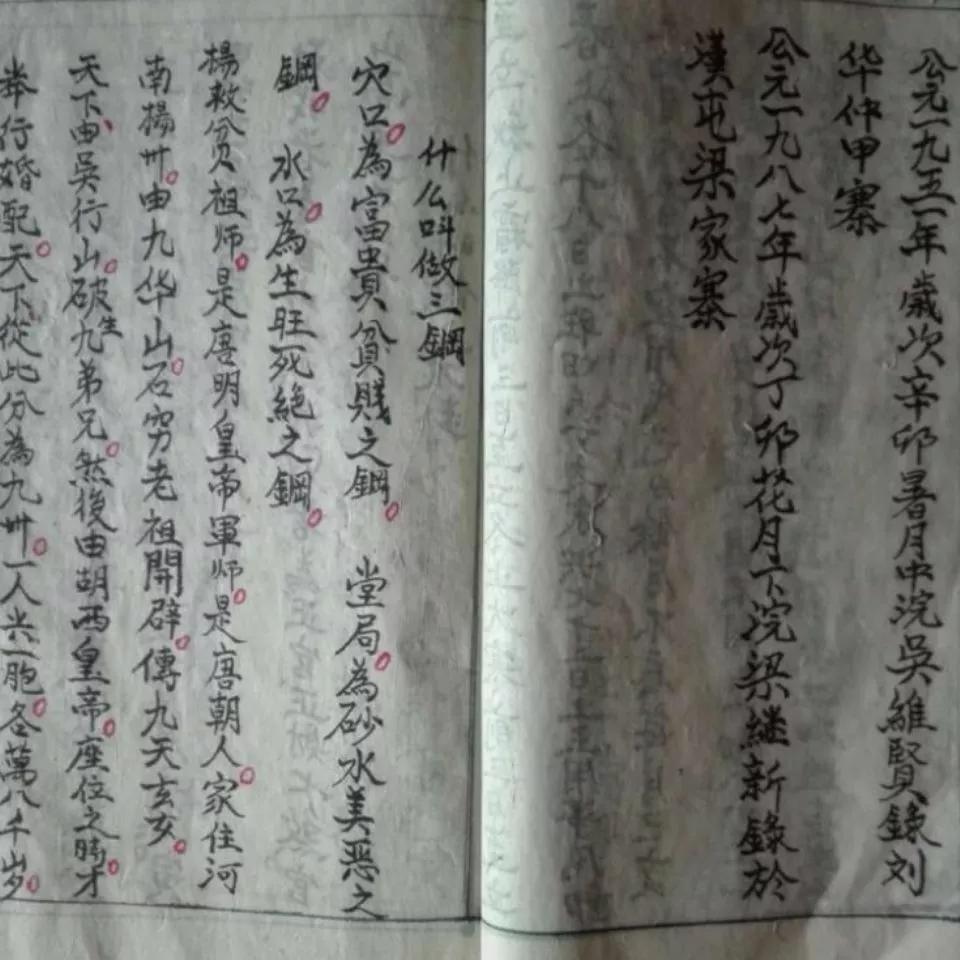 公元一九五一年歲次辛卯暑月中浣吳維賢錄刘
华仲甲寨
公元一九八七年歲次丁卯花月下浣梁继新錄於
漢屯梁家寨
什么呌做三鋼
穴口。為富貴貧賤之鋼。 堂局。為砂水美恶之
鋼。 水口。為生旺死絶之鋼。
楊救贫祖师。是唐明皇帝軍师。是唐朝人。家住河
南揚卅。由九华山。石穷老祖開辟。傳九天玄亥。
天下由吳行山。破生九弟兄。然後由胡西皇帝。座位之時。才
举行婚配。天下從此分為九卅。一人共一胞。各萬八千岁。